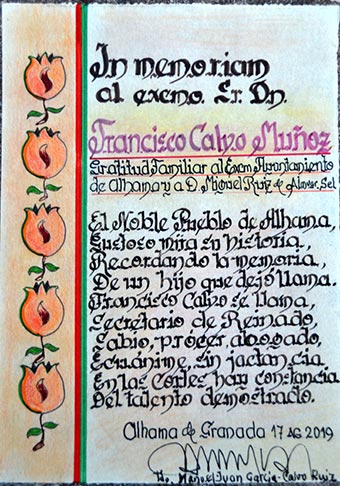 In memoriam
al excmo. Sr. Dn.
Francisco Calvo Muñoz
Gratitud Familiar al Excm Ayuntamiento
de Alhama y a D. Miguel Ruiz de Almod. Sel
El Noble Pueblo de Alhama,
Gustoso mira su historia,
Recordando la memoria,
De un hijo que dejó llama.
Francisco Calvo se llama,
Secretario de Reinado,
Sabio, prócer, abogado,
Ecuánime, sin jactancia
En las Cortes hay constancia
Del talento demostrado.
Alhama de Granada 17 AG 2019
Fdo. Manuel Juan García-Calvo Ruiz